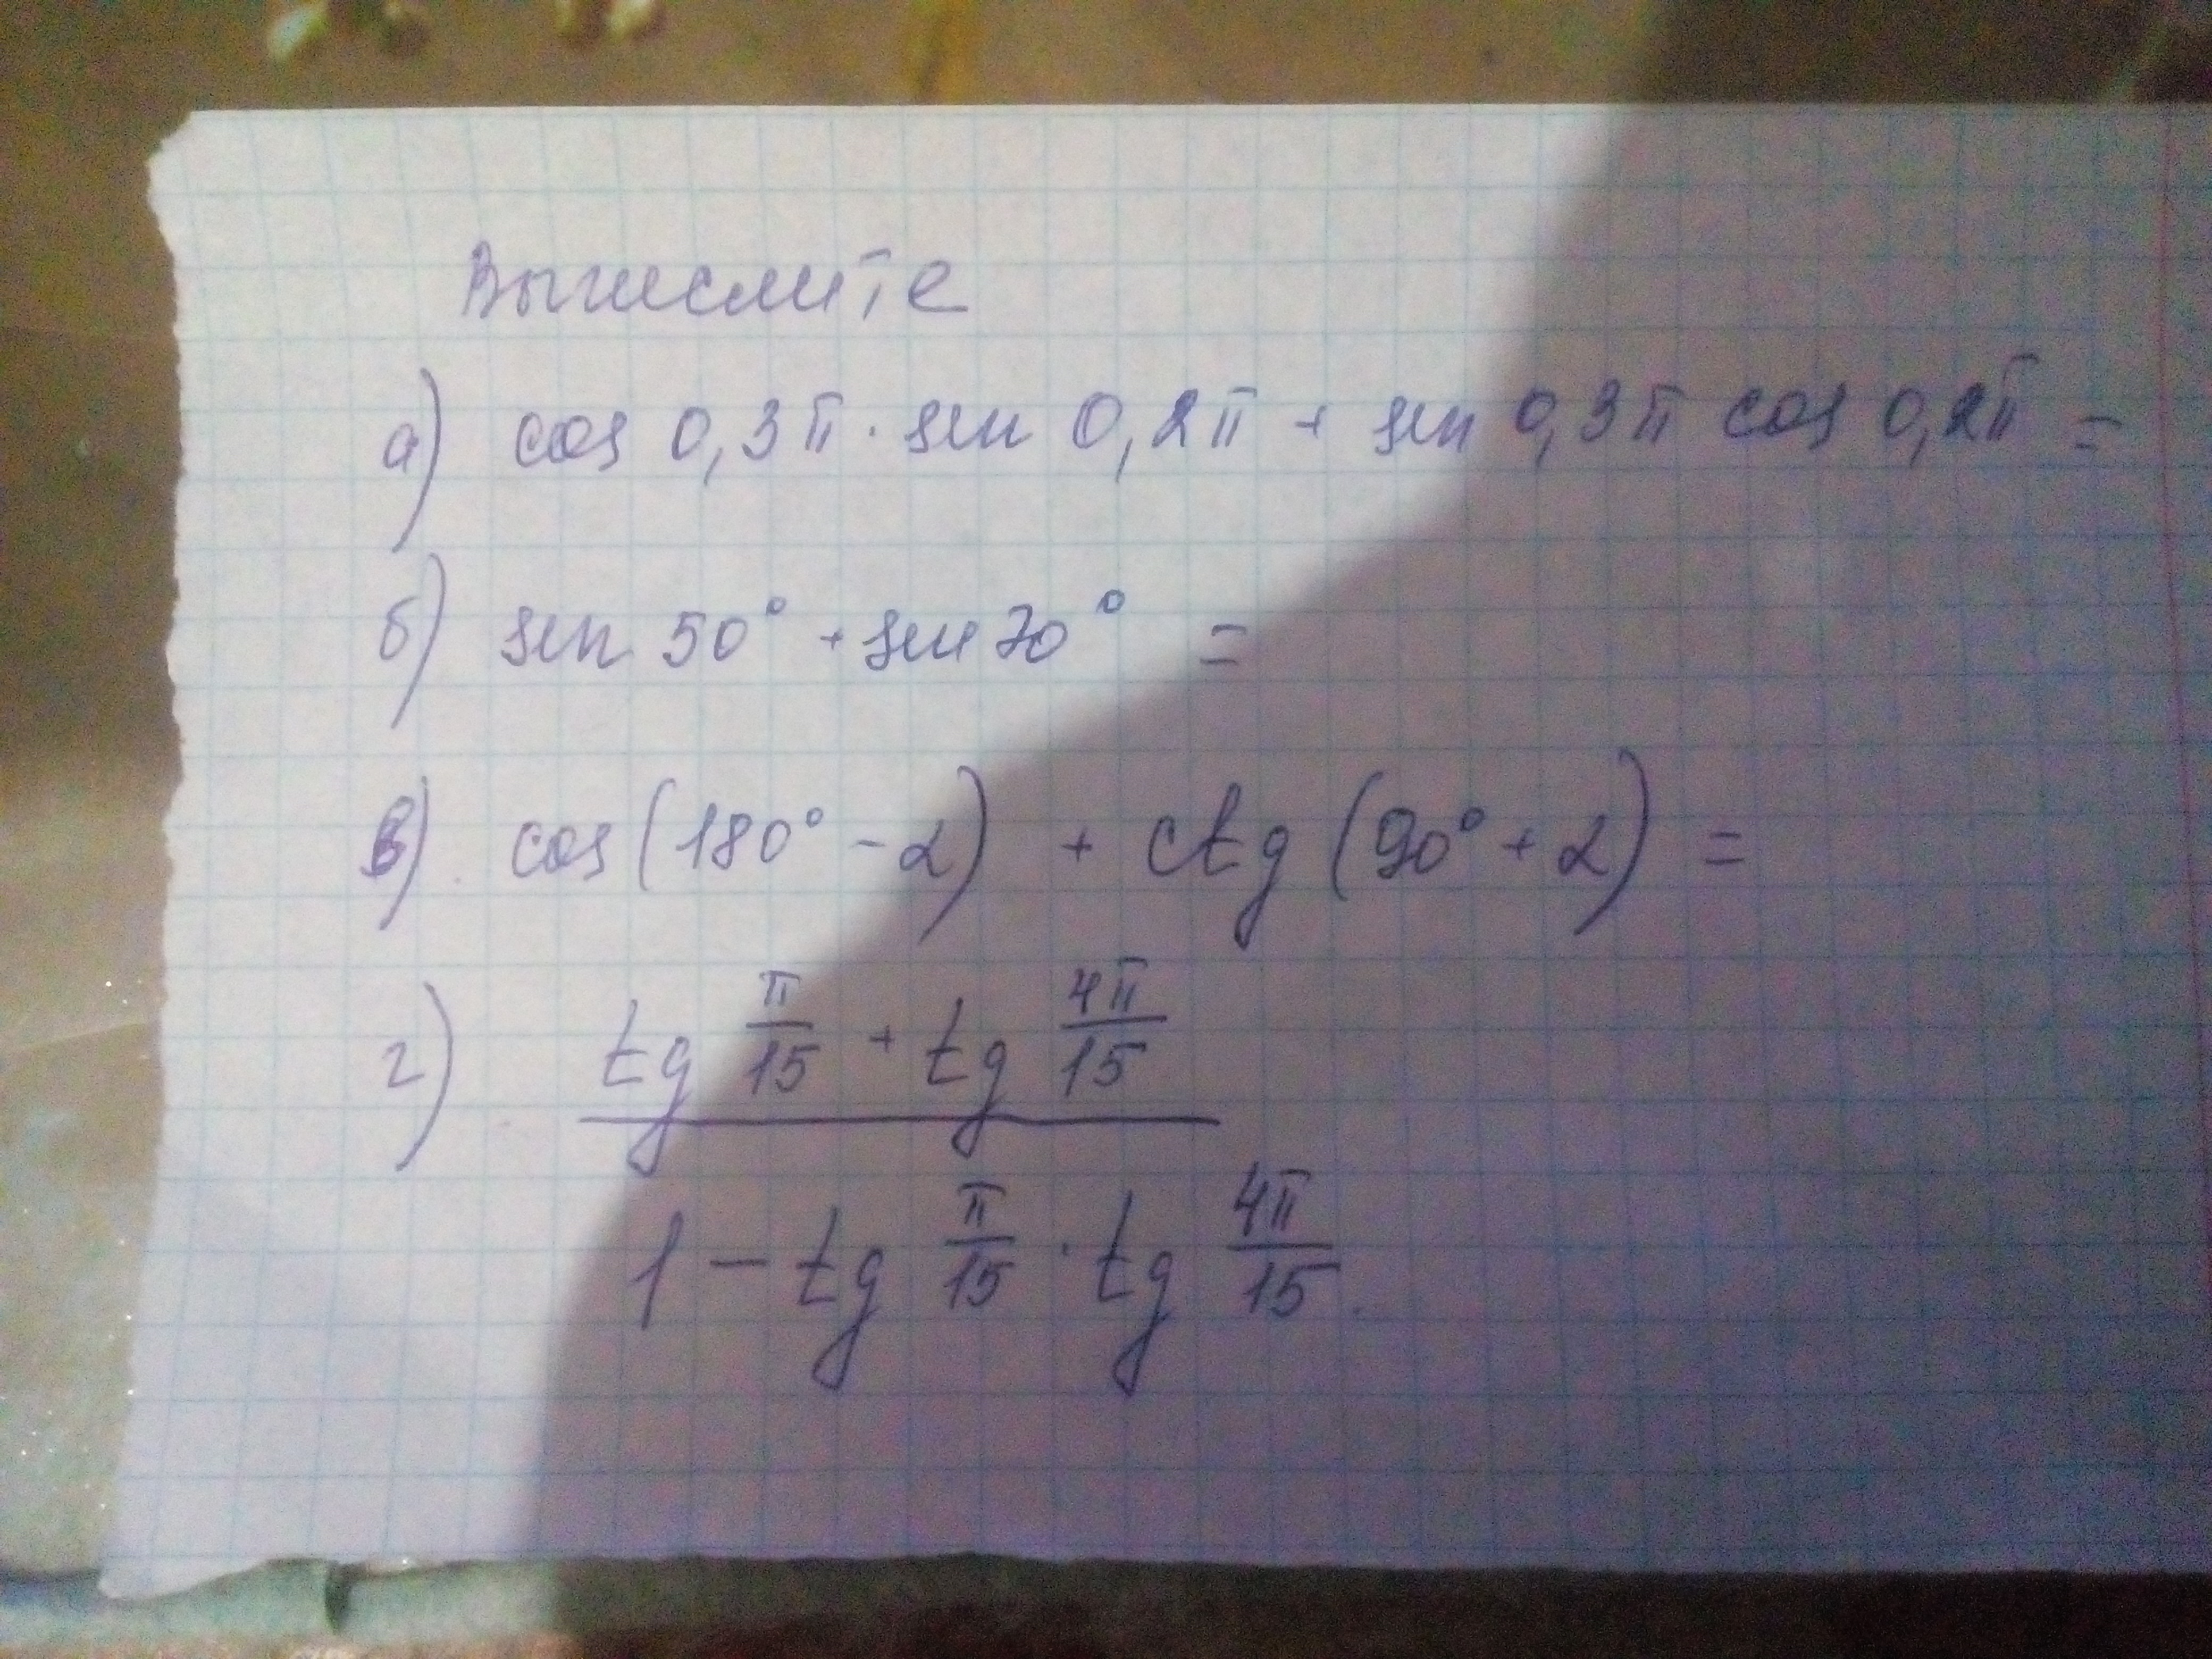 Вычислите
а) cos 0,3π · sin 0,2π + sin 0,3π cos 0,2π =
б) sin 50° + sin 70° =
в) cos(180° - α) + ctg (90° + α) =
г) tg π/15 + tg 4π/15
1 - tg π/15 · tg 4π/15